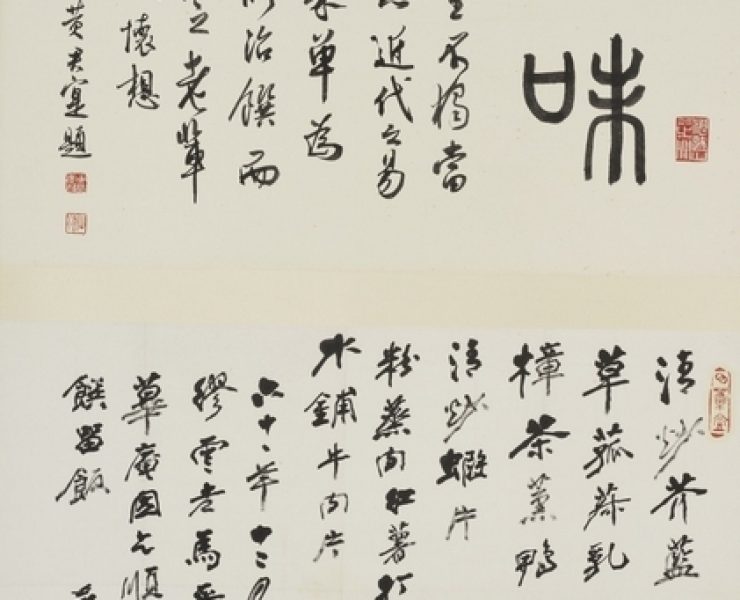 味
不獨當
近代之易
單為
治饌而
之老輩
懷想
黃君寔題
清炒芥藍
草菰蒸乳
樟茶薰鴨
清炒蝦片
粉蒸肉紅薯打
水鋪牛肉片
六十二年十二月
繆雲老馬
摹庵園
饌留飯